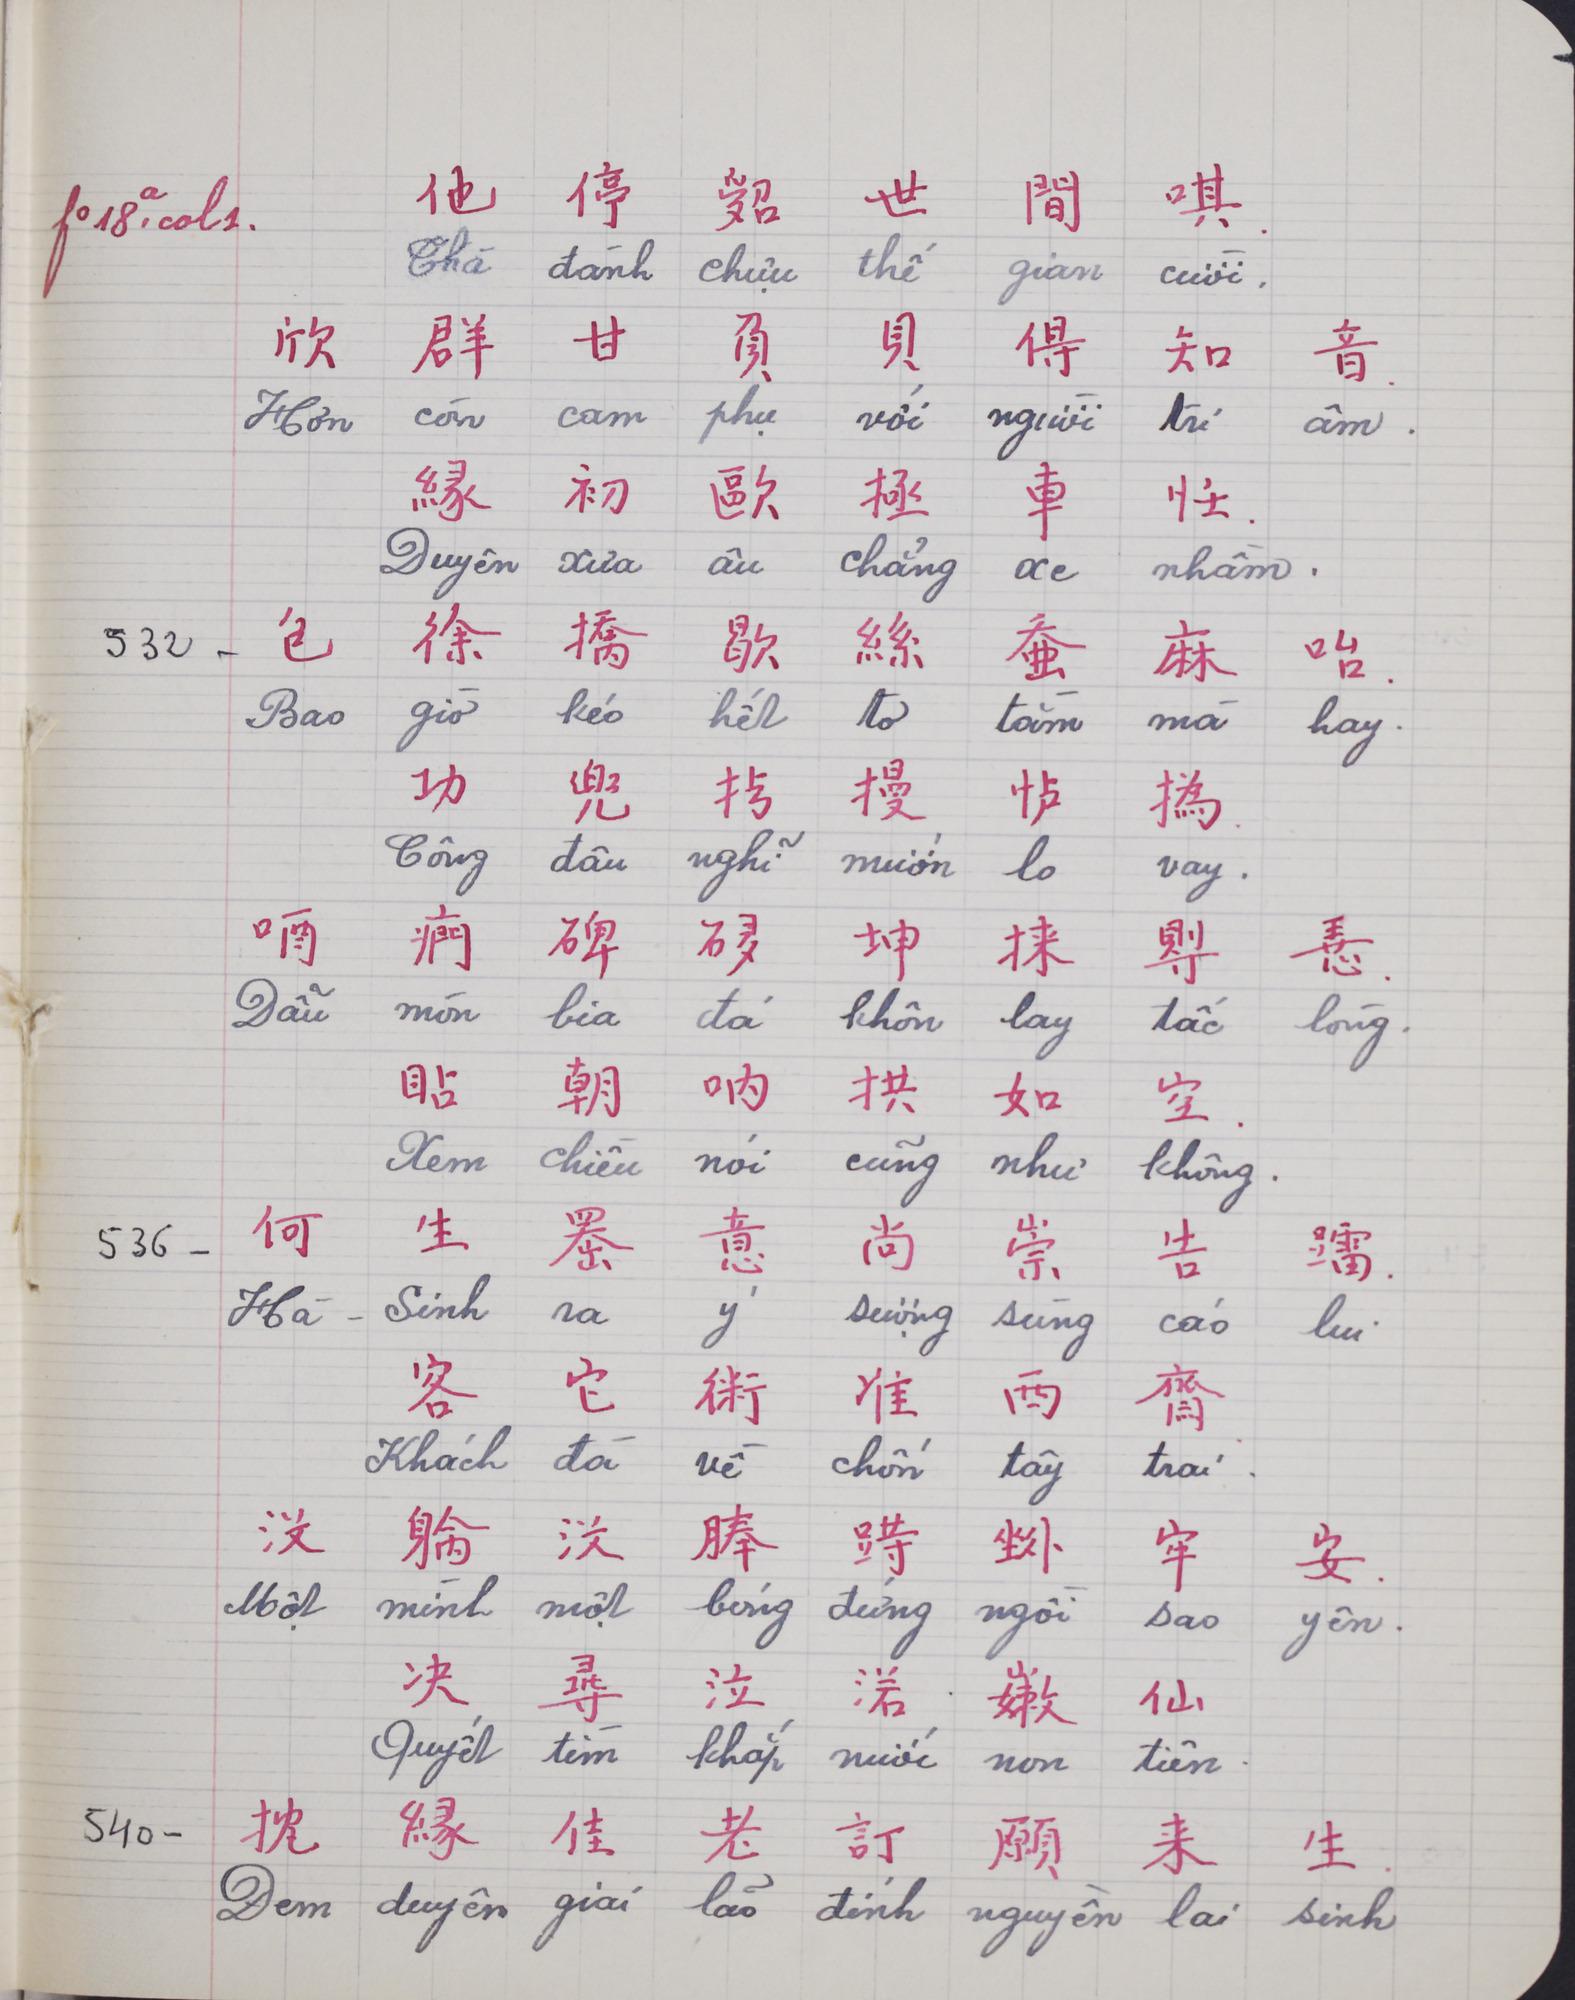 fo 18.a col 1.
他 停 世 間 唭.
Thà đành chựu thế gian cười.
欣 群 甘 負 貝 得 知 音.
Hơn còn cam phụ với người tri âm.
緣 初 歐 極 車
Duyên xưa âu chẳng xe nhầm.
532 - 包 徐 撟 歇 絲 蚕 麻 咍.
Bao giờ kéo hết tơ tằm mà hay.
功 兜 扲 摱 㤕 撝.
Công đâu nghĩ mướn lo vay.
唒 碑 坤 㥯.
Dẫu mòn bia đá khôn lay tấc lòng.
朝 吶 拱 如 空.
Xem chiều nói cũng như không.
536 - 何 生 意 尚 崇 告
Hà - Sinh ra ý sượng sùng cáo lui
客 它 術 准 西 齋.
Khách đà về chốn tây trai.
沒 躺 沒 䏾 牢 安.
Một mình một bóng đứng ngồi sao yên.
决 尋 泣 渃 嫩 仙
Quyết tìm khắp nước non tiên.
540 - 抌 緣 佳 老 訂 願 来 生.
Đem duyên giai lão đính nguyền lai sinh